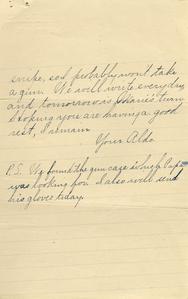 snike, so I probably won't take
a gun. We will write everyday
and tomorrow is Marie's turn
Hoping you are having a good
rest, I remain
Your Aldo.
P.S. We found the gun case which Papa
was looking for. I also will send
his gloves today.